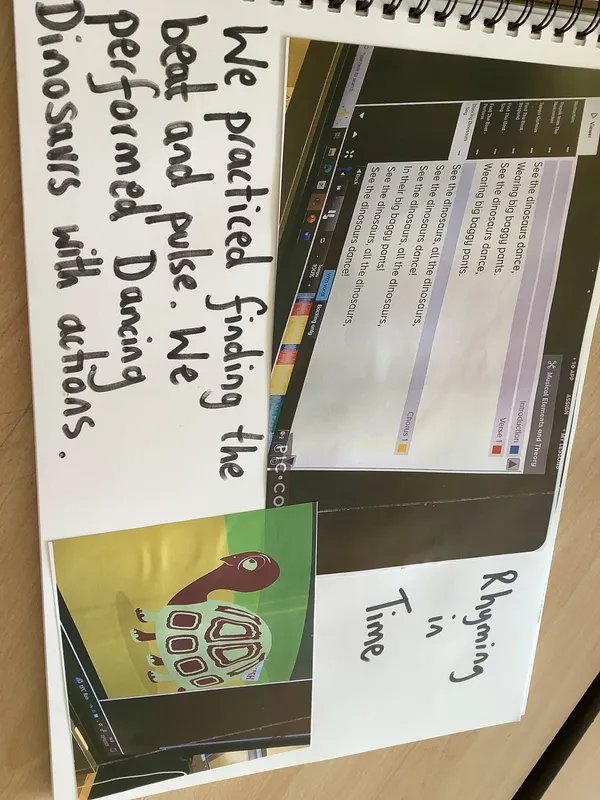 Viewer
TO APP
ASSIGN
MY LESSONS
Musical Elements and Theory
Introduction
Verse 1
See the dinosaurs dance,
Wearing big baggy pants.
See the dinosaurs dance,
Wearing big baggy pants.
Chorus 1
See the dinosaurs, all the dinosaurs,
See the dinosaurs dance!
In their big baggy pants!
See the dinosaurs, all the dinosaurs,
See the dinosaurs dance!
Backing only
Rhyming
in
Time
We practiced finding the
beat and pulse. We
performed Dancing
Dinosaurs with actions.